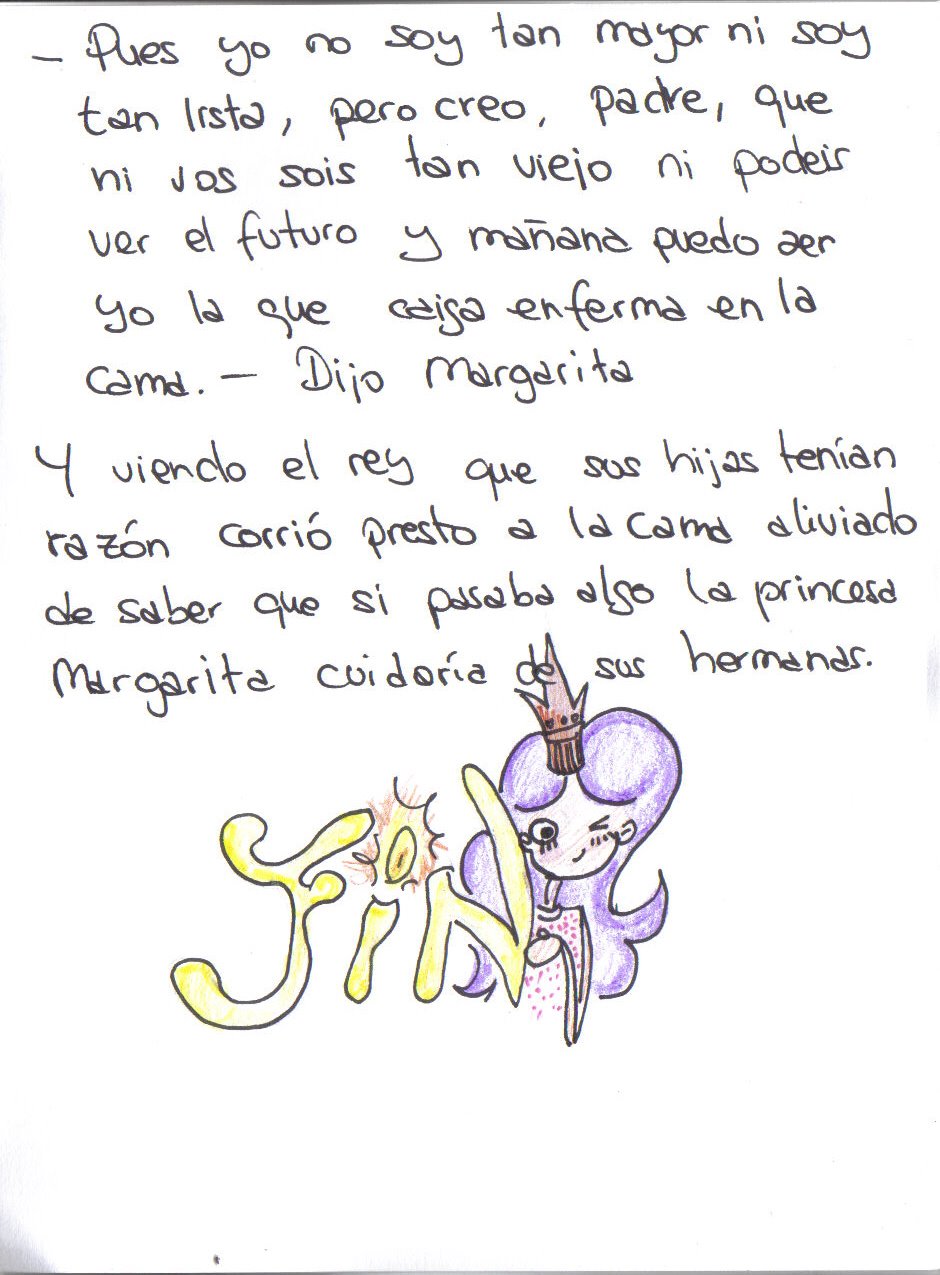 — Pues yo no soy tan mayor ni soy
tan lista, pero creo, padre, que
ni vos sois tan viejo ni podeis
ver el futuro y mañana puedo ser
yo la que caiga enferma en la
cama. — Dijo Margarita
Y viendo el rey que sus hijas tenían
razón corrió presto a la cama aliviado
de saber que si pasaba algo la princesa
Margarita cuidaría de sus hermanas.
FIN